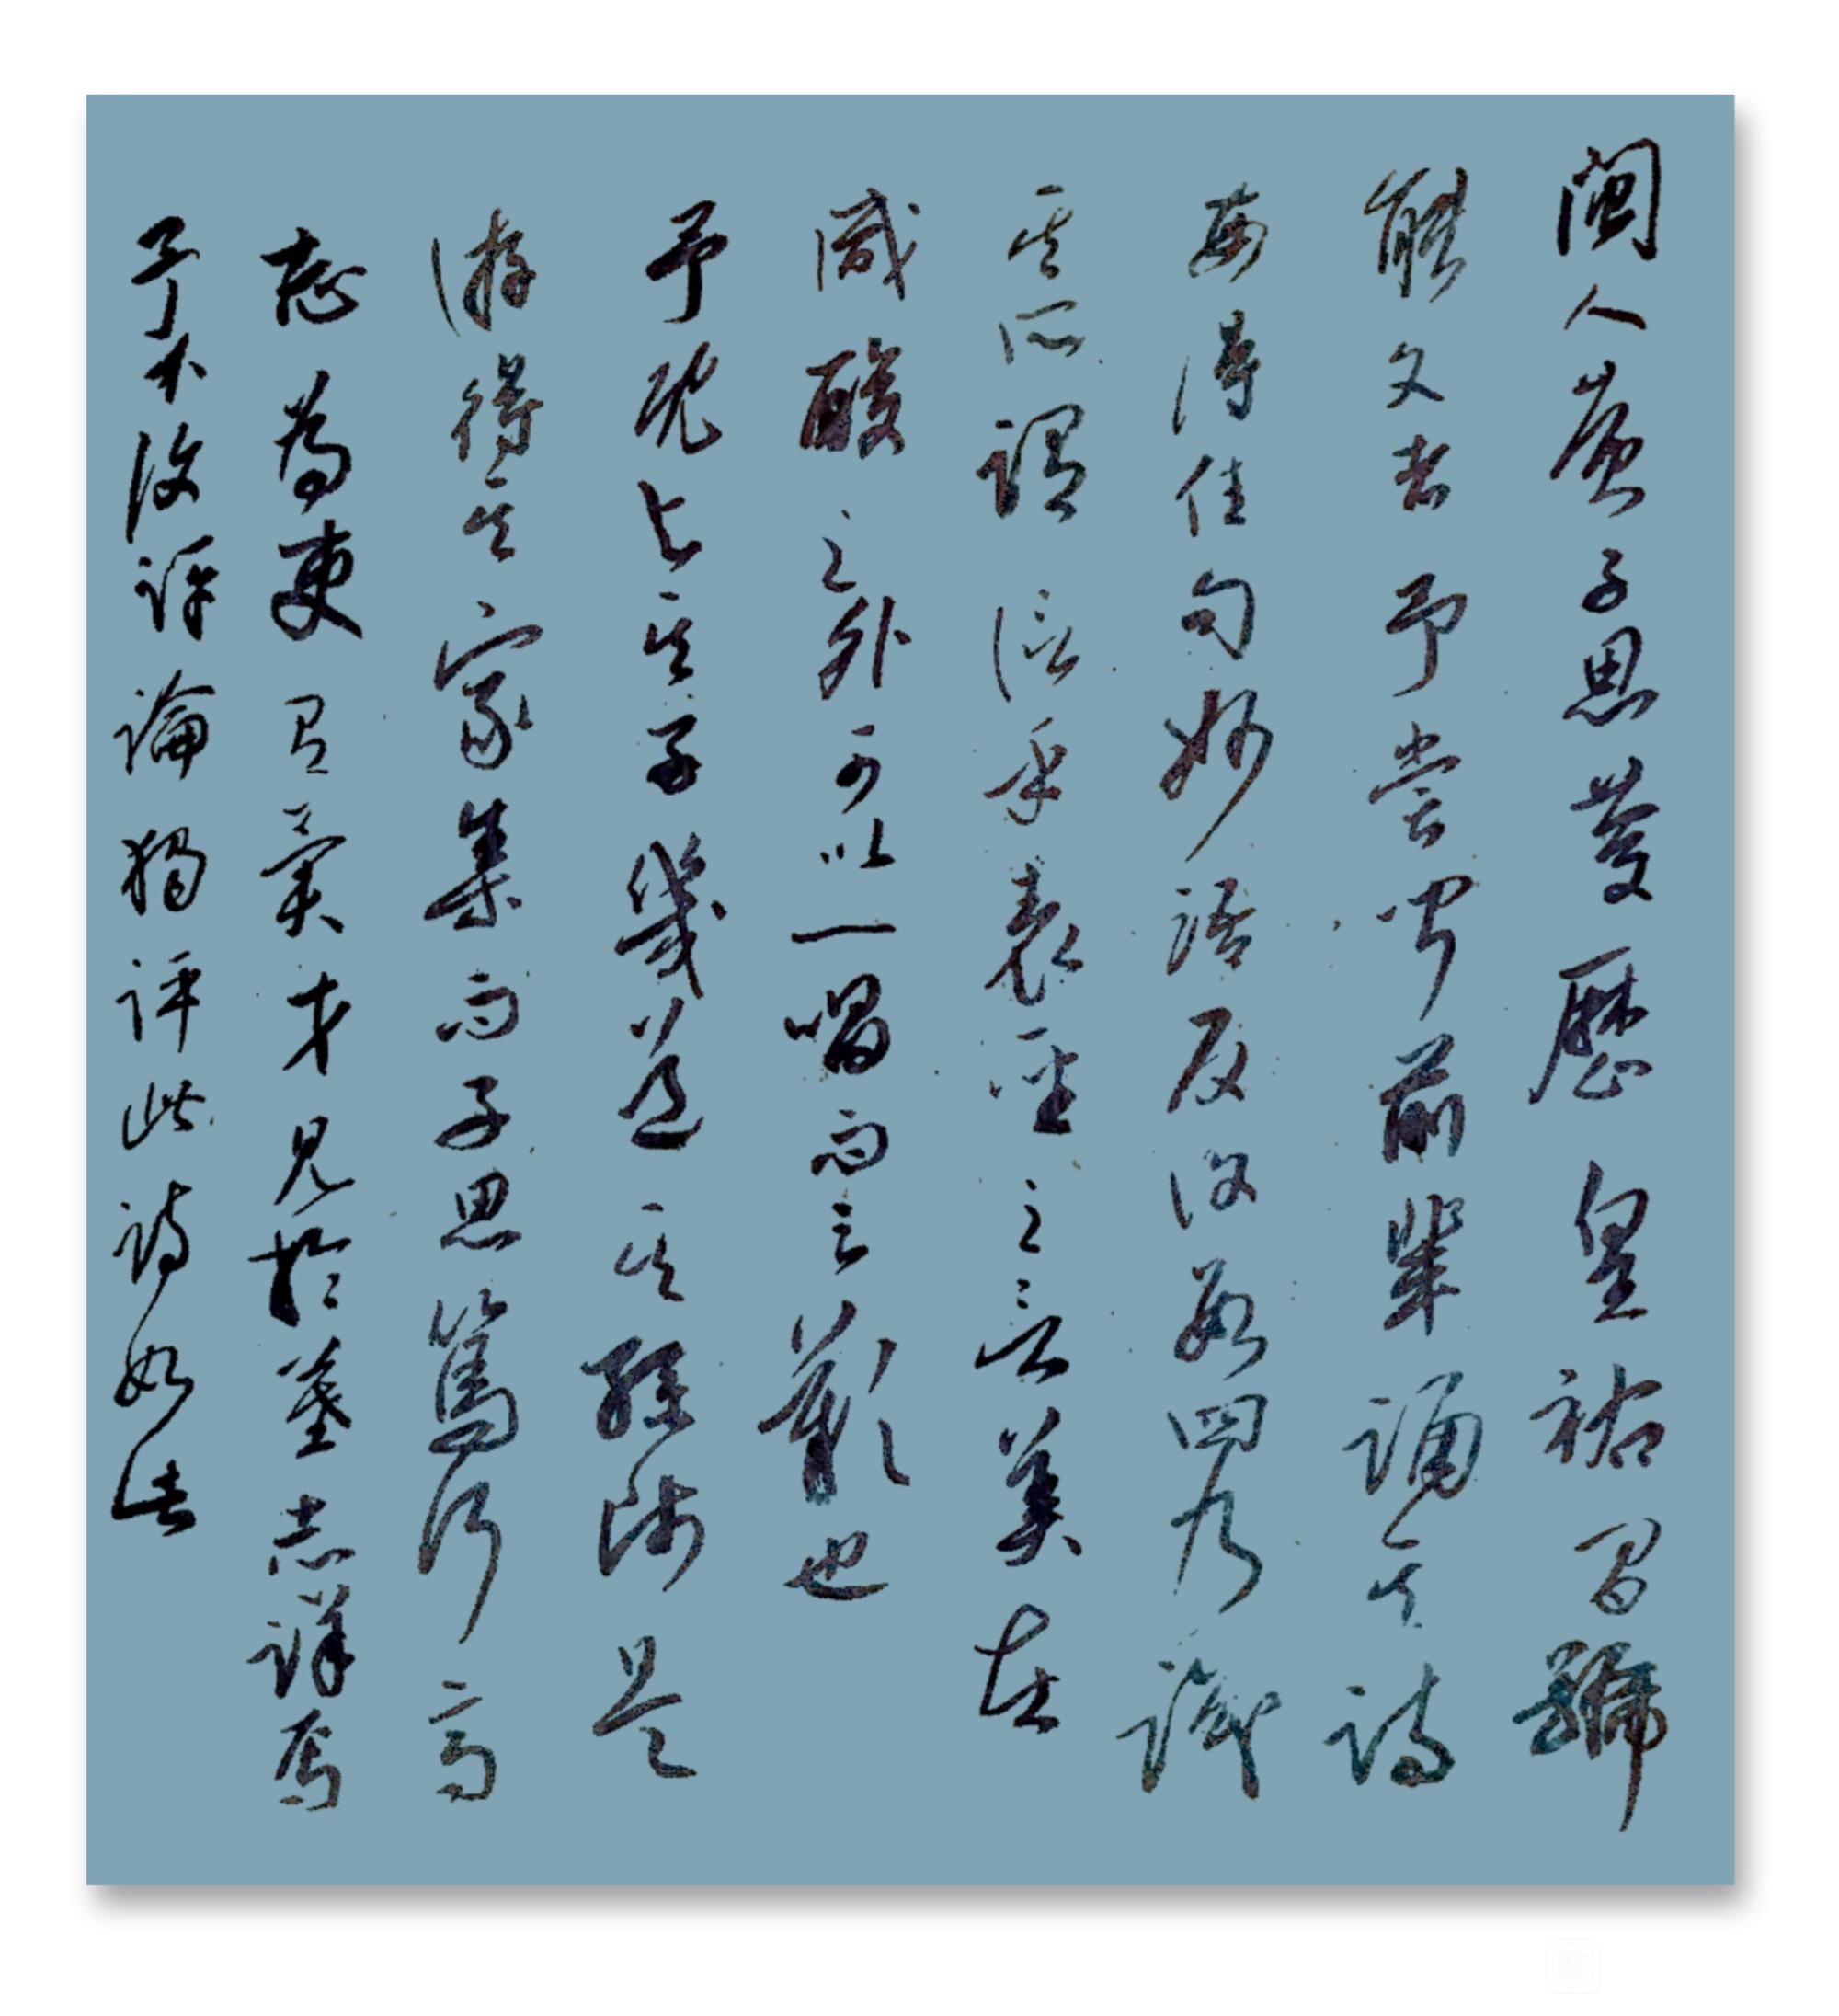 閩人黃子思慶曆皇祐間號
能文者予嘗聞前輩誦其詩
每得佳句妙語反復數四乃識
其所謂信乎表聖之言美在
咸酸之外可以一唱而三歎也
予既與其子幾道其孫師是
游得其家集而子思篤行高
志為吏有異才見於墓志詳矣
予不復評論獨評此詩如此